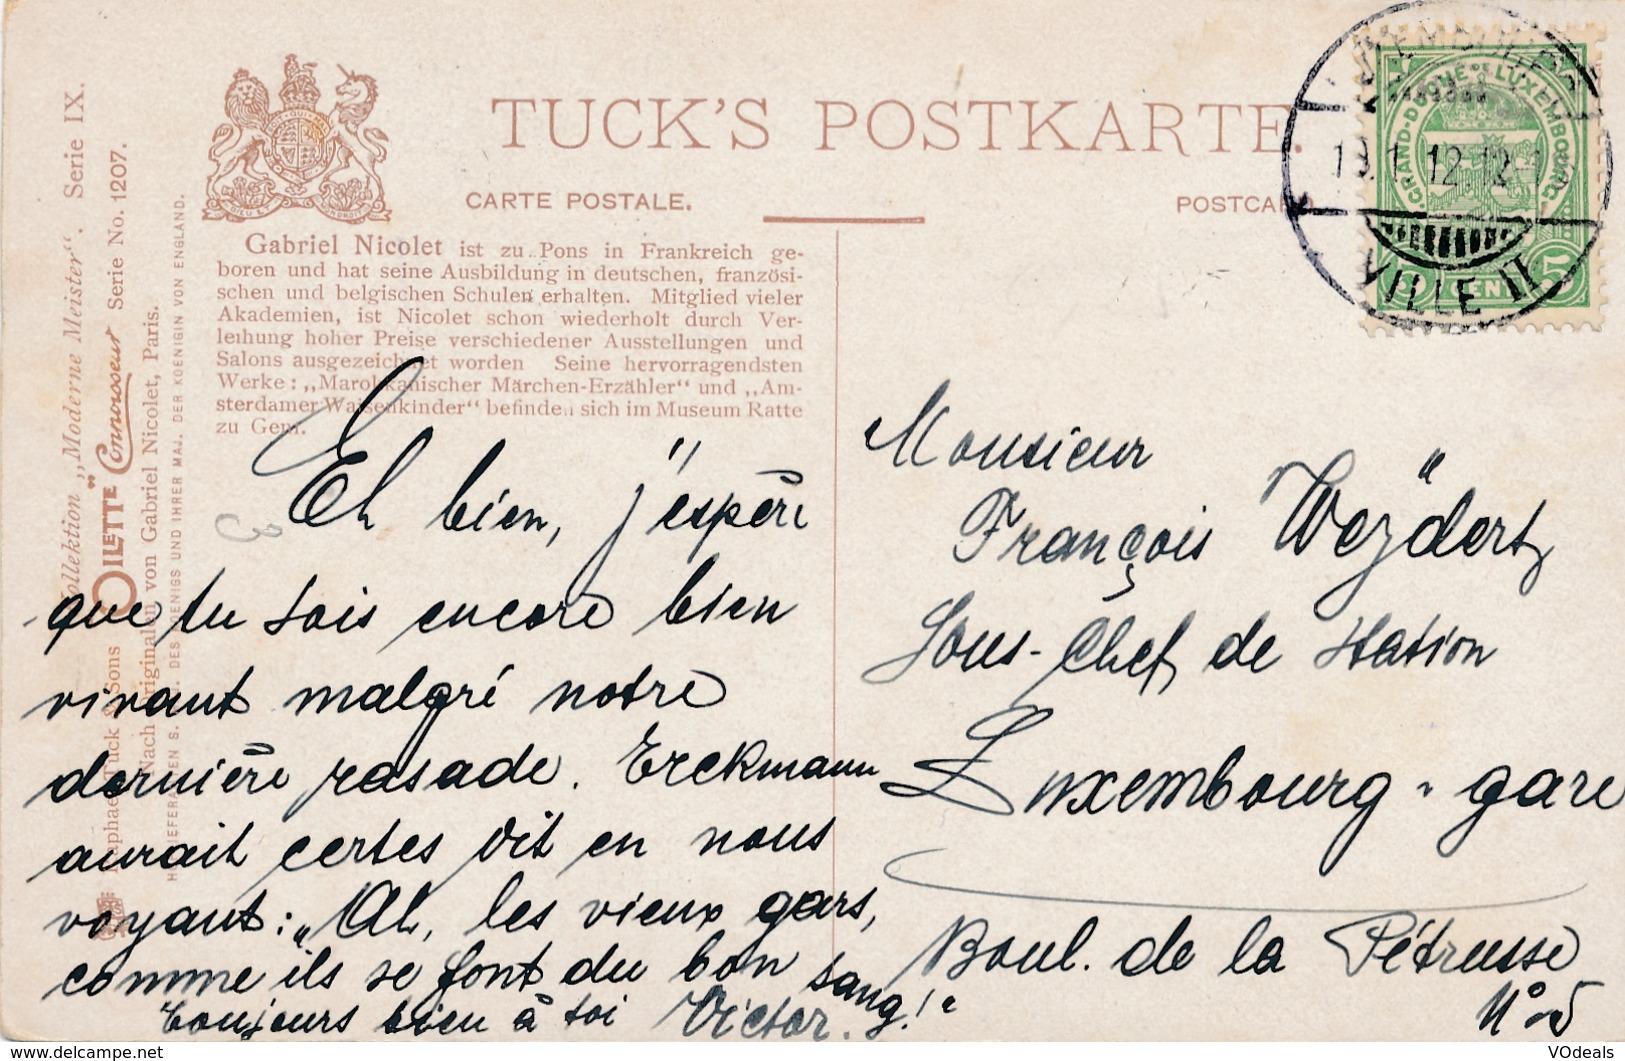 TUCK'S POSTKARTE.
CARTE POSTALE.
POSTCARD
Gabriel Nicolet ist zu Pons in Frankreich ge-
boren und hat seine Ausbildung in deutschen, französi-
schen und belgischen Schulen erhalten. Mitglied vieler
Akademien, ist Nicolet schon wiederholt durch Ver-
leihung hoher Preise verschiedener Ausstellungen und
Salons ausgezeichnet worden Seine hervorragendsten
Werke: „Marokkanischer Märchen-Erzähler“ und „Am-
sterdamer Waisenkinder“ befinden sich im Museum Ratte
zu Gem.
Kollektion „Moderne Meister“. Serie IX.
Raphael Tuck & Sons "OILETTE" Connoisseur Serie No. 1207.
Nach Originalen von Gabriel Nicolet, Paris.
HOFLIEFERANTEN S. MAJ. DES KOENIGS UND IHRER MAJ. DER KOENIGIN VON ENGLAND.
GRAND-DUCHÉ DE LUXEMBOURG
5 CENT 5
LUXEMBOURG
VILLE II
Eh bien, j'espère
que tu sois encore bien
vivant malgré notre
dernière rasade. Erckmann
aurait certes dit en nous
voyant: „Ah, les vieux gars,
comme ils se font du bon sang!“
Toujours bien à toi Victor.
Monsieur
François Weÿdert
Sous-Chef de Station
Luxembourg-gare
Boul. de la Pétrusse
No 5
VOdeals
© VODEALS.com